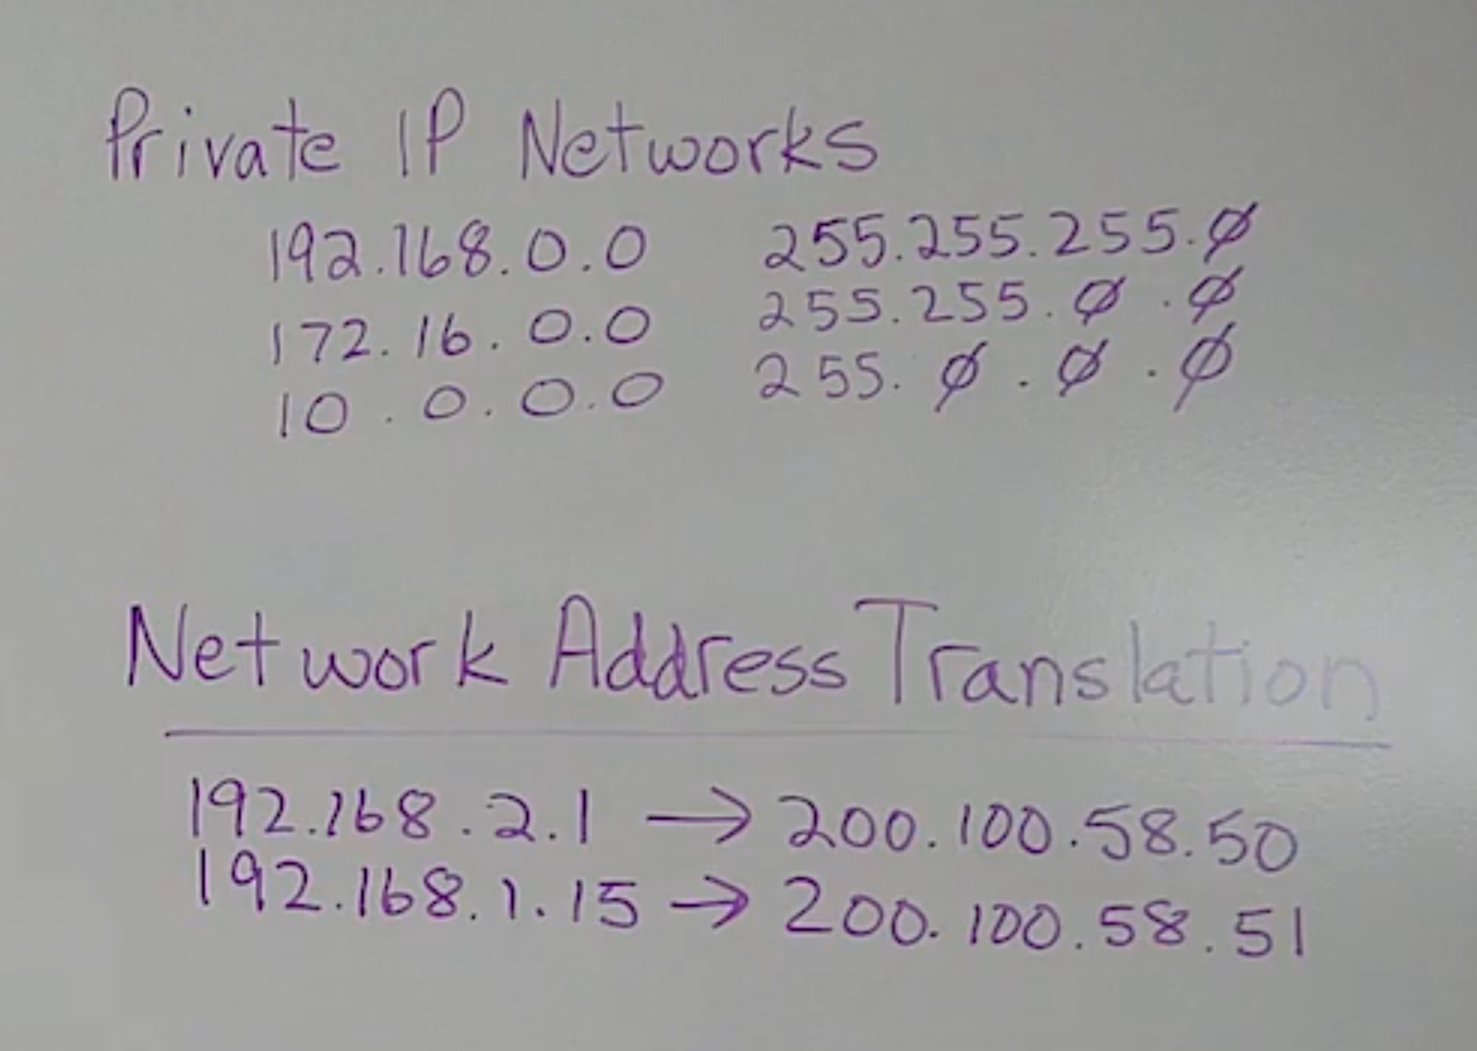 Private IP Networks
192.168.0.0 255.255.255.Ø
172.16.0.0 255.255.Ø.Ø
10.0.0.0 255.Ø.Ø.Ø
Network Address Translation
192.168.2.1 → 200.100.58.50
192.168.1.15 → 200.100.58.51